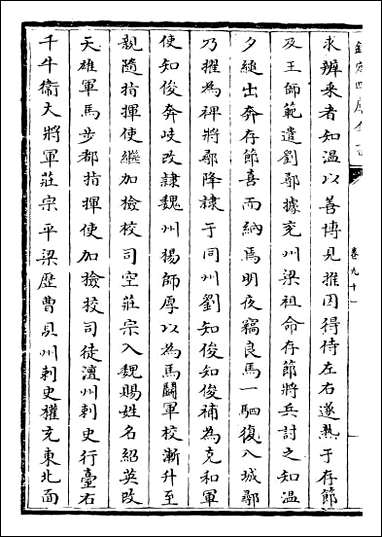 欽定四庫全書
卷九十一
求辨采者知温以善博見推因得侍左右遂熟于存節
及王師範遣劉鄩據兗州梁祖命存節將兵討之知温
夕縋出奔存節喜而納焉明夜竊良馬一駟復入城鄩
乃擢為裨將鄩降隷于同州劉知俊知俊補為克和軍
使知俊奔岐改隷魏州楊師厚以為馬鬬軍校漸升至
親隨指揮使繼加檢校司空莊宗入魏賜姓名紹英改
天雄軍馬步都指揮使加檢校司徒澶州刺史行臺右
千牛衞大將軍莊宗平梁歴曹貝州刺史權充東北面